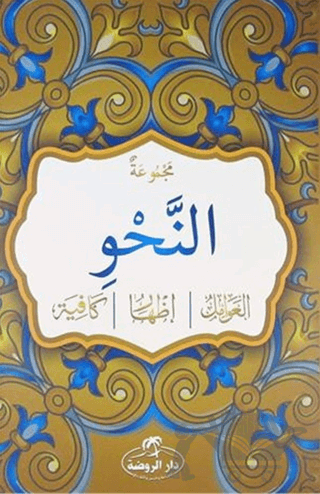 مَجْمُوعَةُ
النَّحْوِ
العَوَامِلُ | إِظْهَارُ | كَافِيَة
دار الروضة